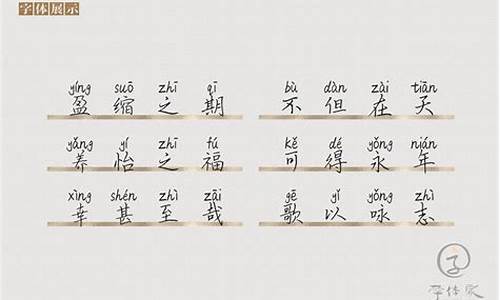 字体展示
yíng suō zhī qī bù dàn zài tiān
盈缩之期 不但在天
yǎng yí zhī fú kě dé yǒng nián
养怡之福 可得永年
xìng shén zhì zāi gē yǐ yǒng zhì
幸甚至哉 歌以咏志
字体家